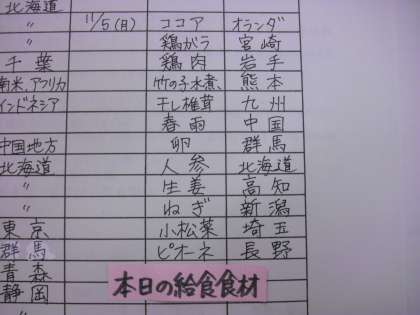 北海道
〃 11/5(月) ココア オランダ
〃 鶏ガラ 宮崎
千葉 鶏肉 岩手
南米、アフリカ 竹の子水煮 熊本
インドネシア 干し椎茸 九州
春雨 中国
中国地方 卵 群馬
北海道 人参 北海道
〃 生姜 高知
〃 ねぎ 新潟
東京 小松菜 埼玉
群馬 ピオーネ 長野
青森
静岡
〃
本日の給食食材